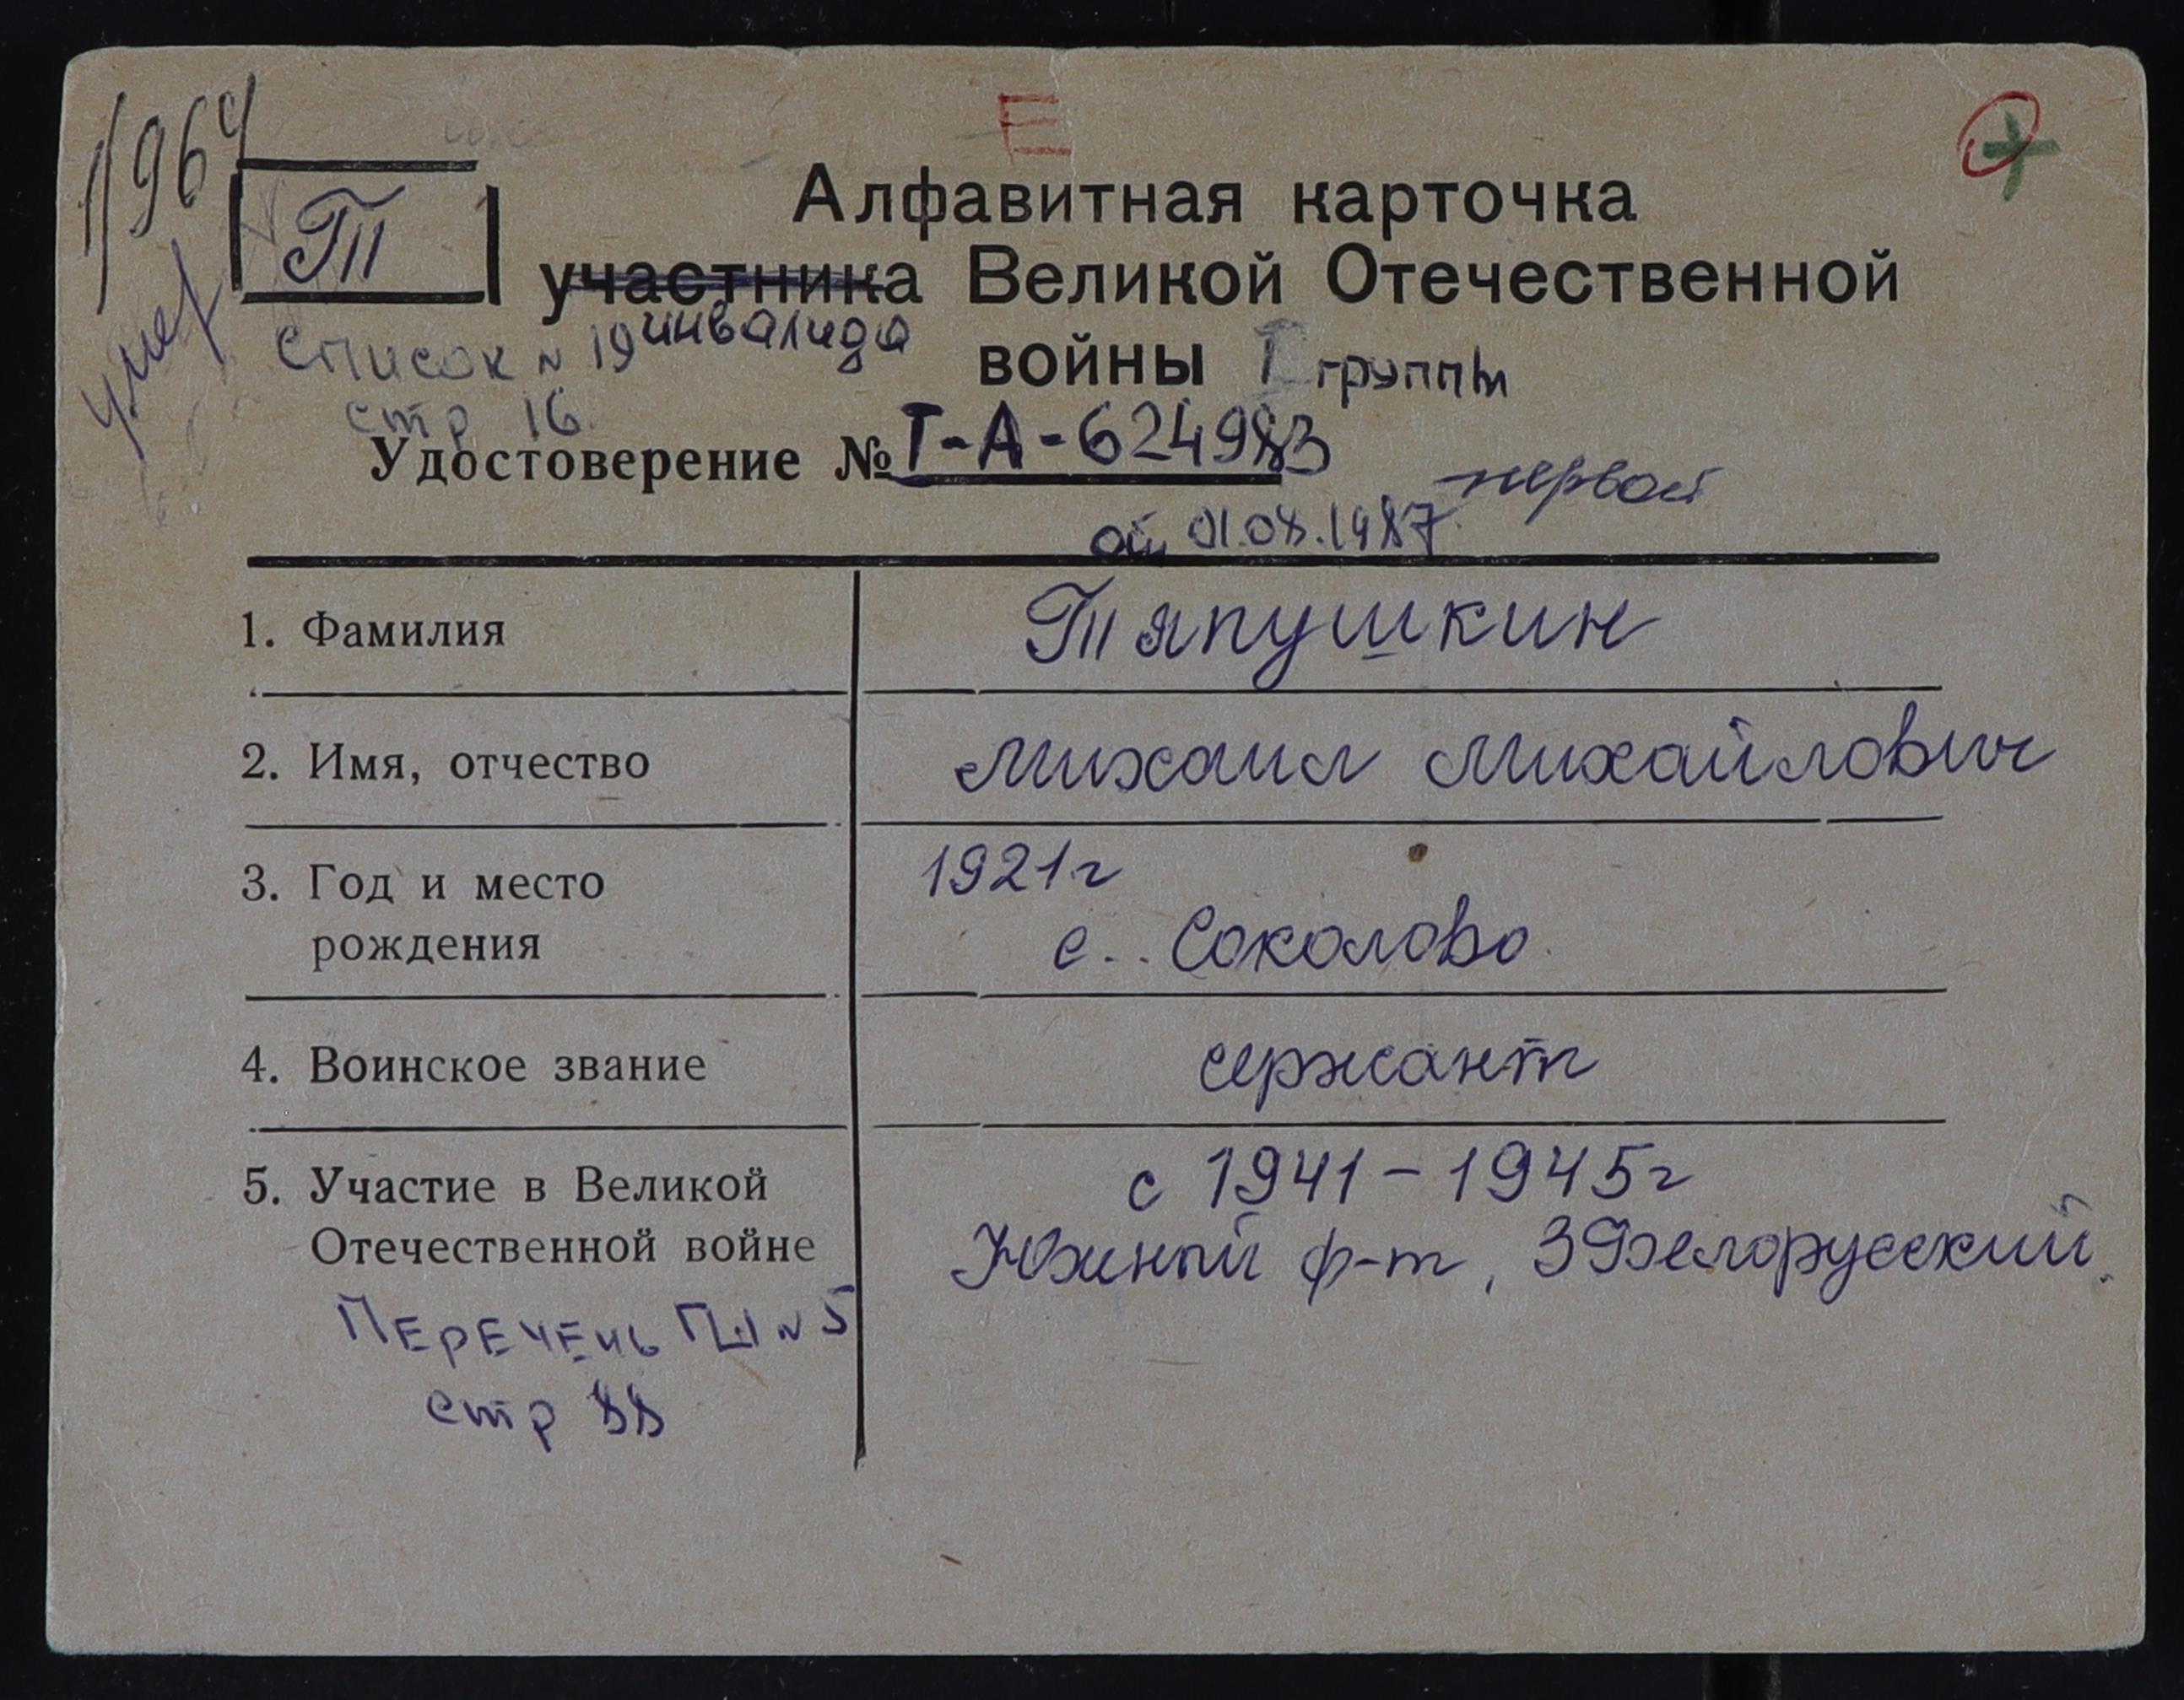 1964
умер
Е
Т
Алфавитная карточка
участника Великой Отечественной
инвалида
войны I группы
Список N 19
стр 16.
Удостоверение № Т-А-624983
первой
от 01.08.1987
1. Фамилия Тяпушкин
2. Имя, отчество Михаил Михайлович
3. Год и место 1921г
рождения с. Соколово
4. Воинское звание сержант
5. Участие в Великой с 1941-1945г
Отечественной войне Южный ф-т, 3 Белорусский.
ПЕРЕЧЕНЬ ГШ N 5
стр 88